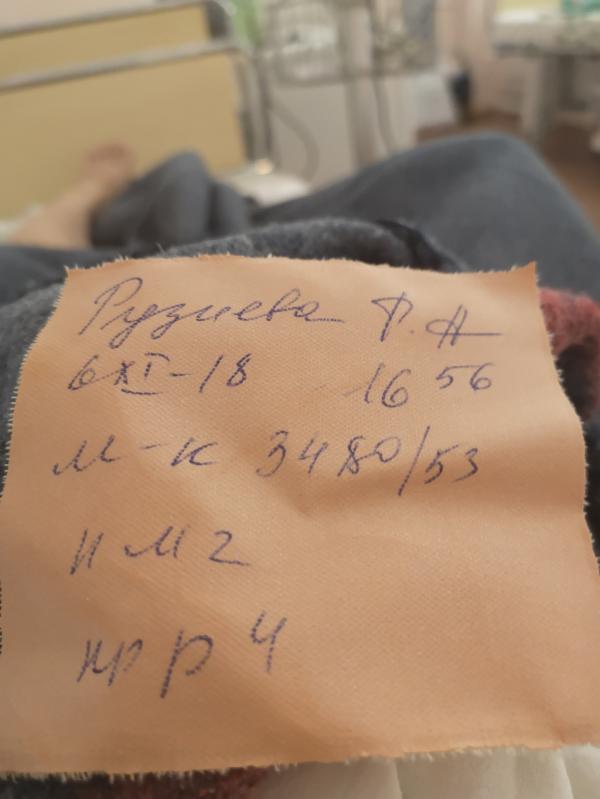 Рузиева Р. Н
6 XI-18 16 56
м-к 3480/53
НМ2
пр р 4